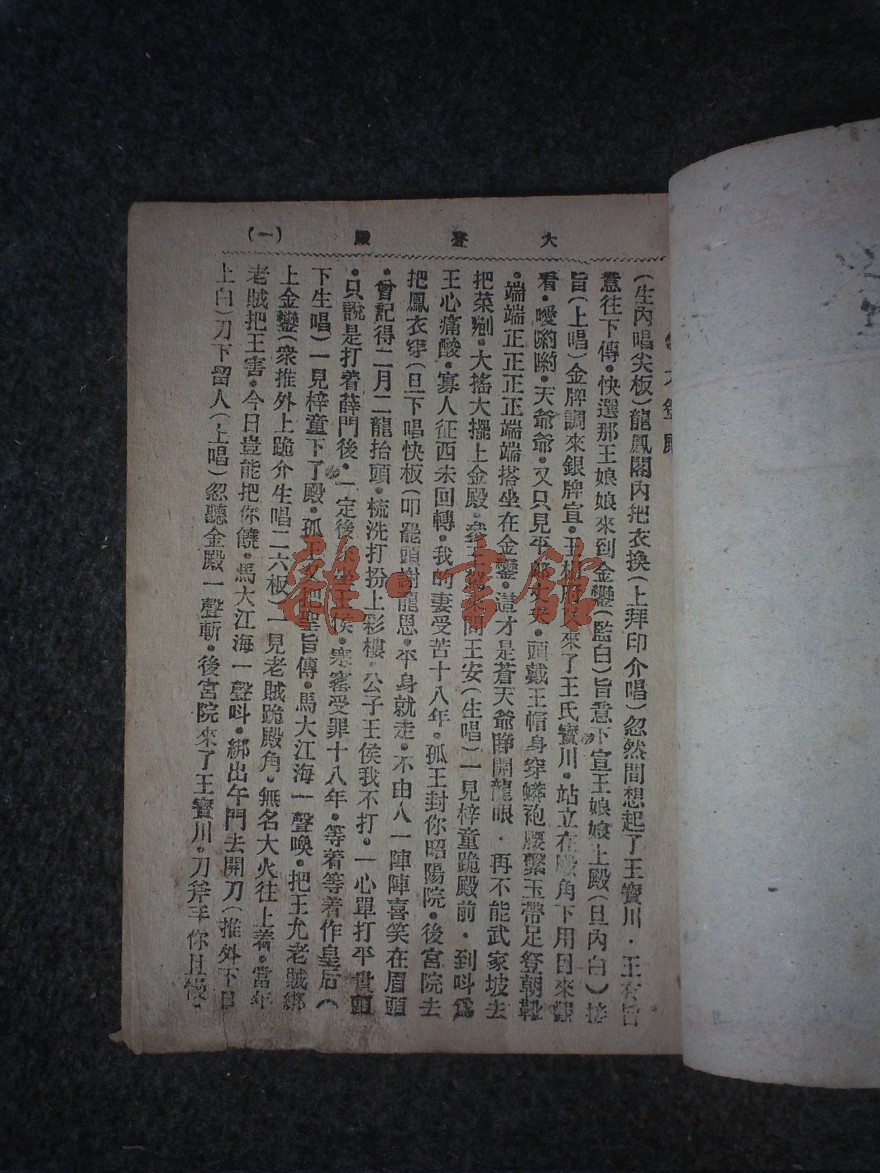 大登殿 (一)
大登殿
(生內唱尖板)龍鳳閣內把衣換(上拜印介唱)忽然間想起了王寶川·王有旨
意往下傳·快選那王娘娘來到金鑾(監白)旨意下宣王娘娘上殿(旦內白)接
旨(上唱)金牌調來銀牌宣·王 來了王氏寶川·站立在 角下用目來觀
看·噯喲喲·天爺爺·又只見平 頭戴王帽身穿蟒袍腰繫玉帶足登朝靴
·端端正正正正端端搭坐在金鑾·這才是蒼天爺睜開龍眼·再不能武家坡去
把菜剜·大搖大擺上金殿·參王 問王安(生唱)一見梓童跪殿前·到呌爲
王心痛酸·寡人征西未回轉·我的妻受苦十八年·孤王封你昭陽院·後宮院去
把鳳衣穿(旦下唱快板(叩罷頭謝龍恩·平身就走·不由人一陣陣喜笑在眉頭
·曾記得二月二龍抬頭·梳洗打扮上彩樓·公子王侯我不打·一心單打平貴頭
·只說是打着薛門後·一定後 王侯·寒窰受罪十八年·等着等着作皇后(
下生唱)一見梓童下了殿·孤王又把聖旨傳·馬大江海一聲喚·把王允老賊綁
上金鑾(衆推外上跪介生唱二六板)一見老賊跪殿角·無名大火往上着·當年
老賊把王害·今日豈能把你饒·馬大江海一聲呌·綁出午門去開刀(推外下旦
上白)刀下留人(上唱)忽聽金殿一聲斬·後宮院來了王寶川·刀斧手你且緩·
雜·書館